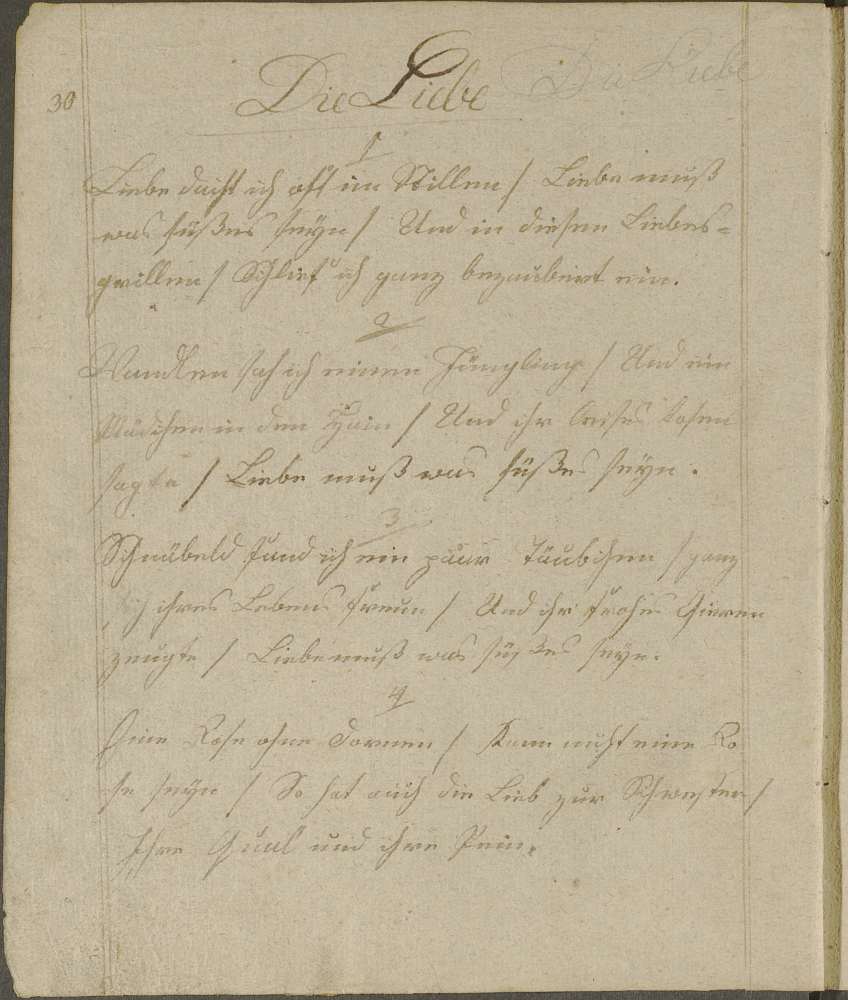 30
Die Liebe Die Liebe
1
Liebe dacht ich oft im Stillen / Liebe muß
was süßes seyn / Und in diesen Liebes-
grillen / Schlief ich ganz bezaubert ein.
2
Wandlen sah ich einen Jüngling / Und ein
Mädchen in den Hain / Und ihr leises Kosen
sagte / Liebe muß was süßes seyn.
3
Schnäbeld fand ich ein paar Täubchen / ganz
ihres Lebens freun / Und ihr frohes Girren
zeugte / Liebe muß was süßes seyn.
4
Eine Rose ohne Dornen / Kann nicht eine Ro
se seyn / So hat auch die Lieb zur Schwester /
Ihre Qual und ihre Pein.